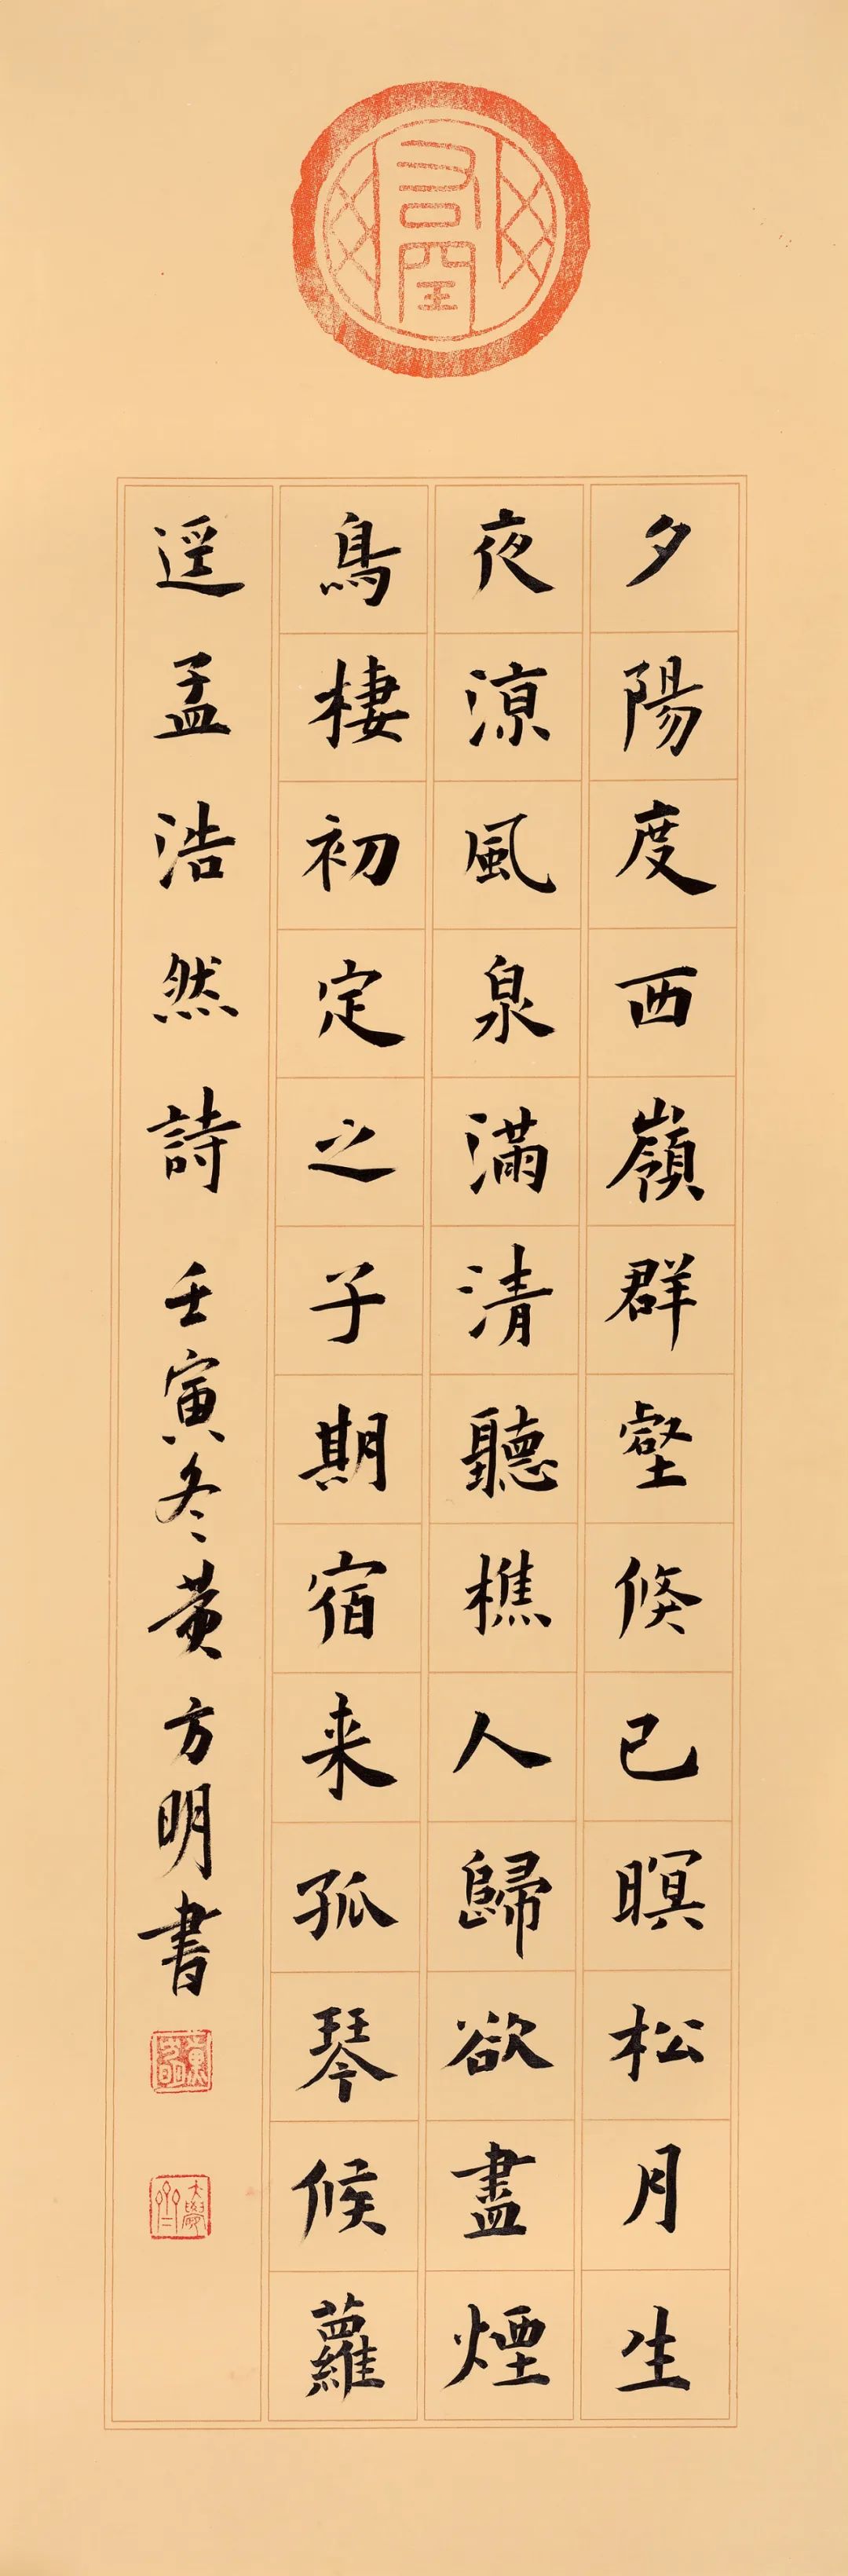 夕陽度西嶺群壑倏已暝松月生
夜涼風泉滿清聽樵人歸欲盡煙
鳥棲初定之子期宿来孤琴候蘿
逕孟浩然詩 壬寅冬黄方明書